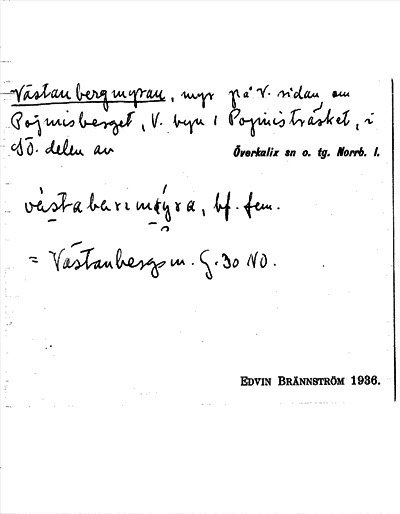 Västanbergmyran, myr på V. sidan om
Pojmisberget, V. byn i Pojmisträsket, i
SÖ. delen av Överkalix sn o. tg. Norrb. l.
våstabarımýra, bf. fem.
= Västanbergsm. G. 30 NO.
EDVIN BRÄNNSTRÖM 1936.